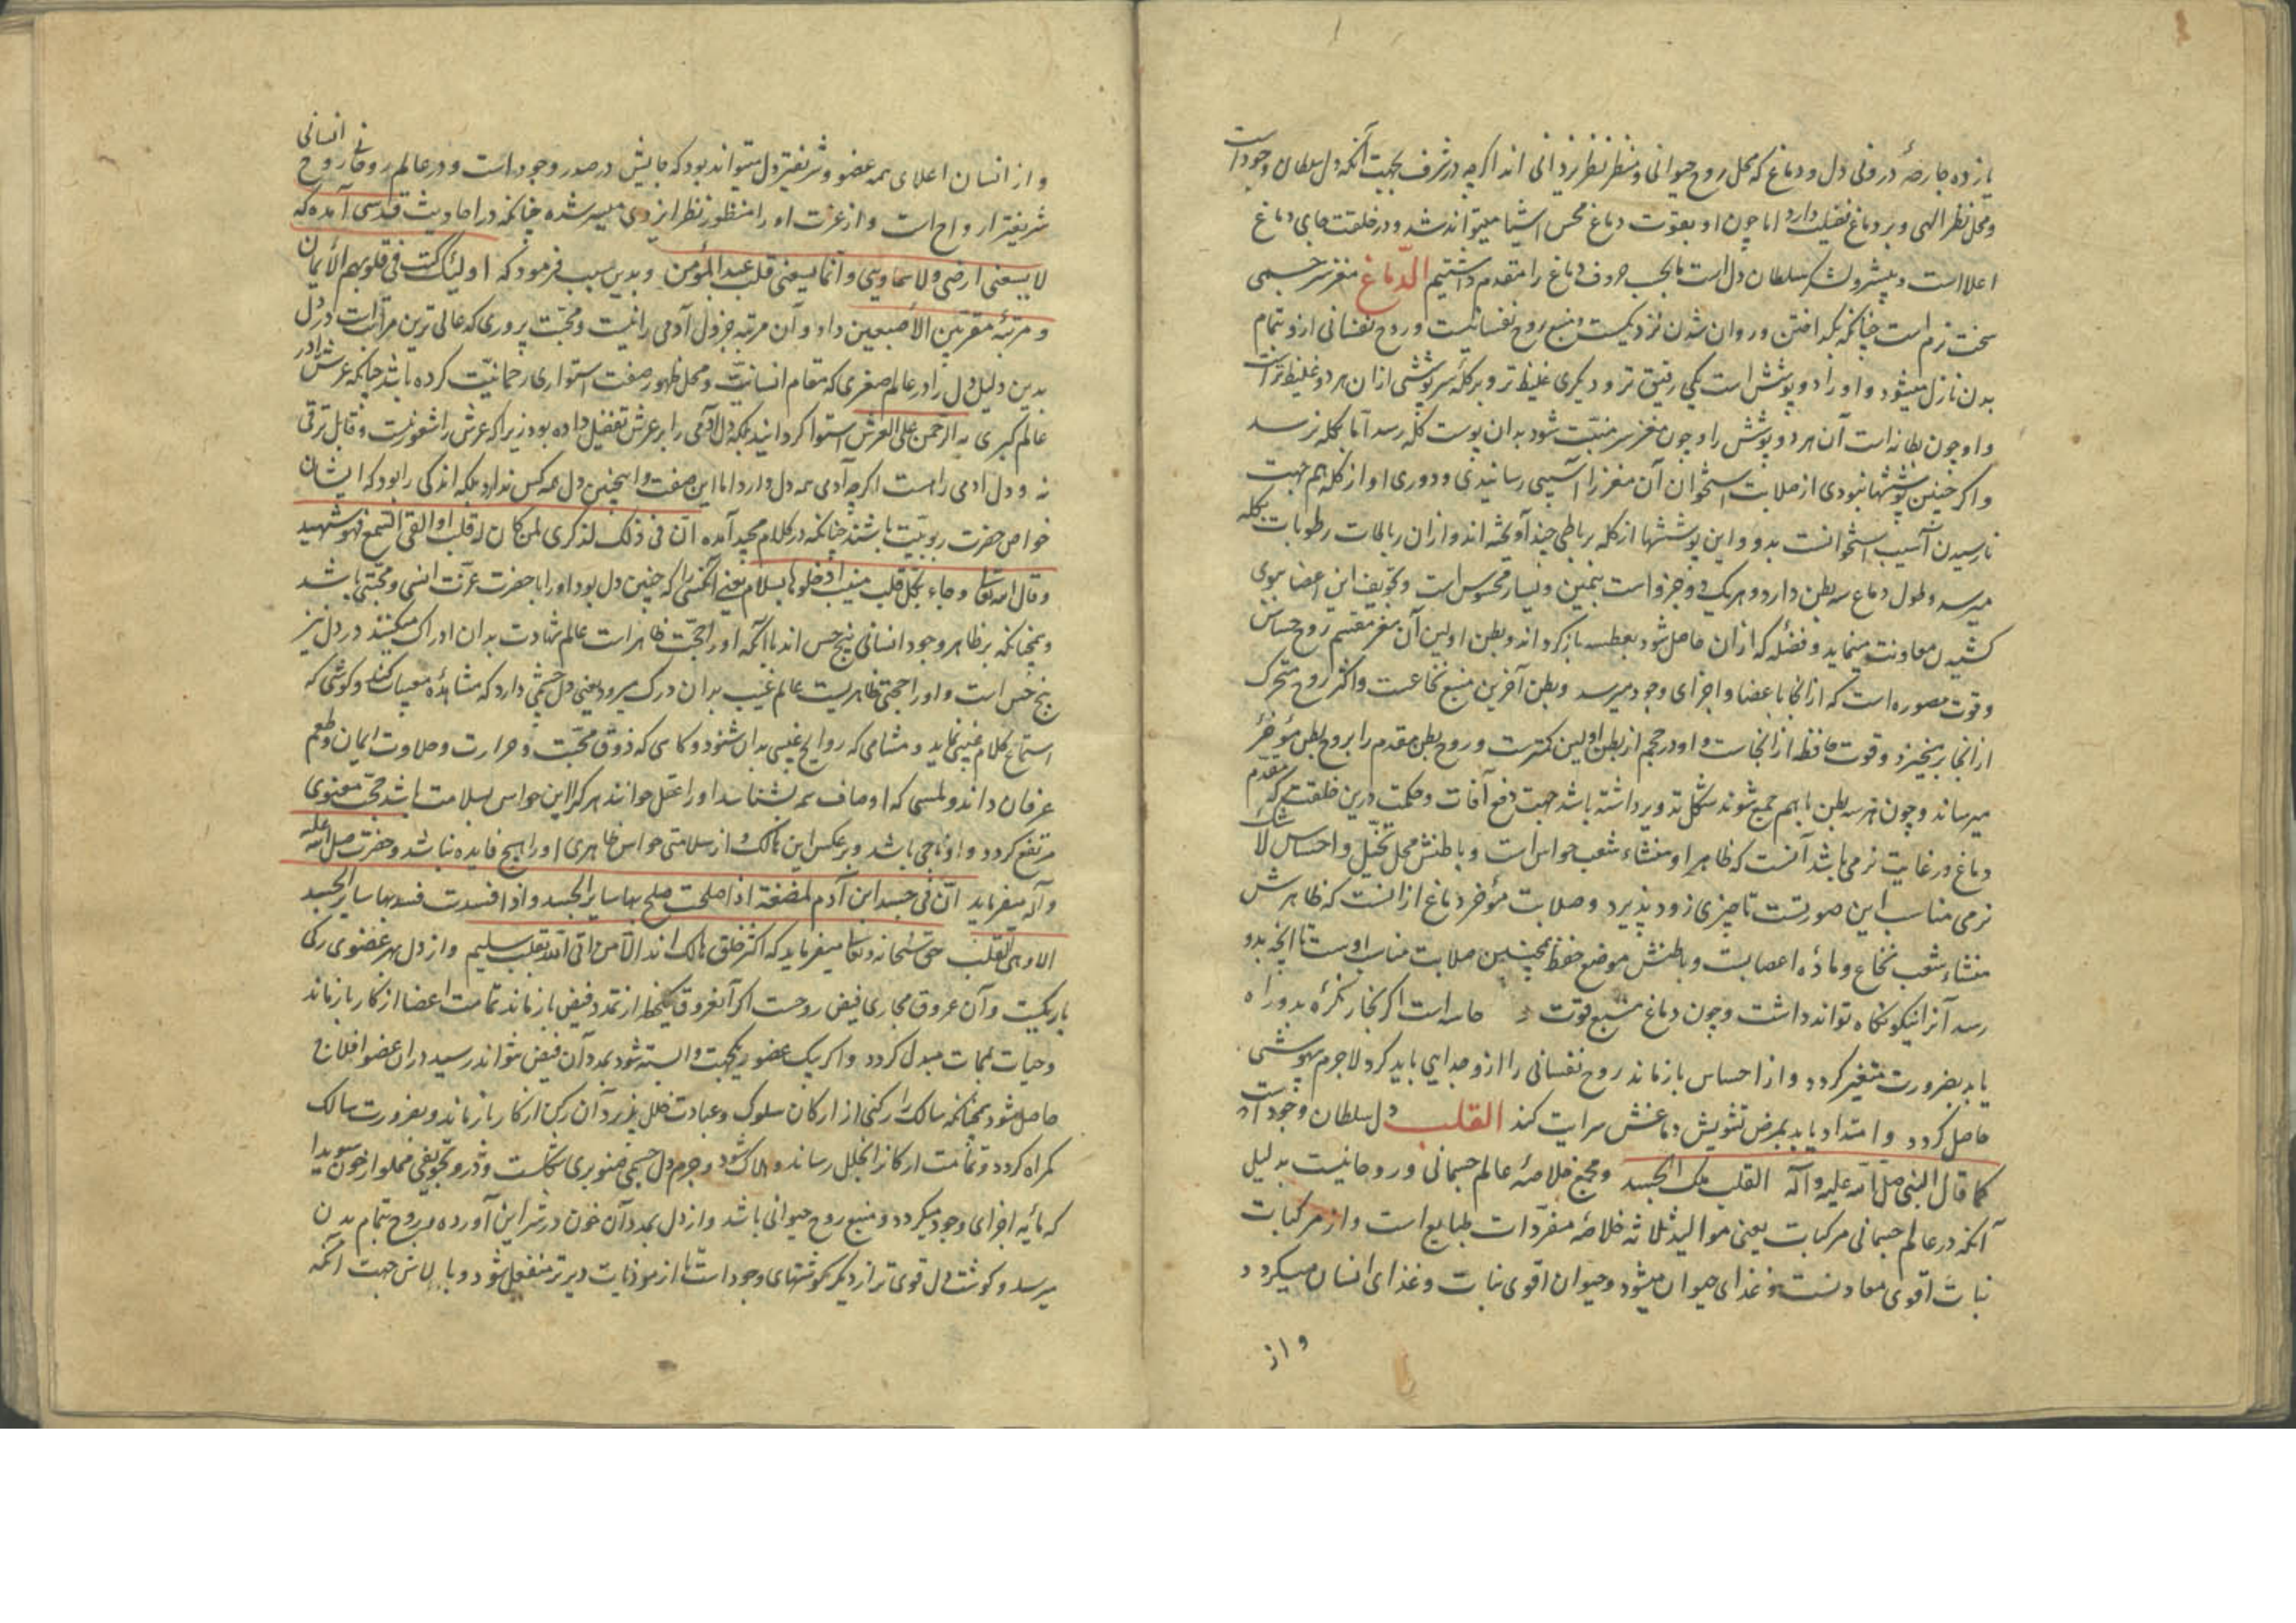 یازده جارحهٔ درونی دل و دماغ که محل روح حیوانی و منظر نظر یزدانی اند اگرچه در شرف بجهت آنکه دل سلطان وجود است
و محل نظر الهی و بر دماغ تفضیل دارد اما چون او بقوت دماغ محس اشیا میتواند شد و در خلقت جای دماغ
اعلا است و پیشرو لشکر سلطان دل است ما بحسب حروف دماغ را متقدم داشتیم الدماغ مغز سر جسمی
سخت نرم است چنانکه بگداختن و روان شدن نزدیکست و منبع روح نفسانیست و روح نفسانی ازو بتمام
بدن نازل میشود و او را دو پوشش است یکی رقیق تر و دیگری غلیظ تر و بر کله سرپوشی از ان هر دو غلیظ تر است
و او چون بطانه است آن هر دو پوشش را و چون مغز سر منبت شود بدان پوست کله رسد اما بکله نرسد
و اگر چنین پوششها نبودی از صلابت استخوان آن مغز را آسیبی رسانیدی و دوری او از کله هم جهت
نارسیدن آسیب استخوانست بدو و این پوششها از کله برباطی چند آویخته اند و از ان رباطات رطوبات بکله
میرسد و طول دماغ سه بطن دارد و هر یک دو جزو است بیمین و یسار محسوس است و تجویف این اعضا ببوی
کشیدن معاونت مینماید و فضله که از ان حاصل شود بعطسه باز گرداند و بطن اولین آن مغز مقسم روح حساس
و قوت مصوره است که از انجا باعضا و اجزای وجود میرسد و بطن آخرین منبع نخاعست و اکثر روح متحرک
از انجا برخیزد و قوت حافظه از انجاست و او در حجم از بطن اولین کمترست و روح بطن مقدم را بروح بطن مؤخر
میرساند و چون هر سه بطن باهم جمع شوند شکل تدویر داشته باشد جهت دفع آفات و حکمت درین خلقت که مقدم
دماغ در غایت نرمی باشد آنست که ظاهر او منشاء شعب حواس است و باطنش محل تخیل و احساس لا شک
نرمی مناسب این صورتست تا چیزی زود پذیرد و صلابت مؤخر دماغ از انست که ظاهرش
منشاء شعب نخاع و مادهٔ اعصابست و باطنش موضع حفظ همچنین صلابت مناسب اوست تا انچه بدو
رسد آنرا نیکو نگاه تواند داشت و چون دماغ منبع قوت حاسه است اگر بخار نکره بدو راه
یابد بضرورت متغیر گردد و از احساس باز ماند روح نفسانی را ازو جدایی باید کرد لاجرم بیهوشی
حاصل گردد و امتداد یابد بمرض تشویش دماغش سرایت کند القلب دل سلطان وجود است
کما قال النبی صلی الله علیه و آله القلب ملک الجسد و مجمع خلاصهٔ عالم جسمانی و روحانیست بدلیل
آنکه در عالم جسمانی مرکبات یعنی موالید ثلاثه خلاصهٔ مفردات طبایع است و از مرکبات
نبات اقوی معادنست و غذای حیوان میشود و حیوان اقوی نبات و غذای انسان میگردد
و از
و از انسان اعلای همه عضو و شریفتر دل میتواند بود که جایش در صدر وجود است و در عالم روحانی روح انسانی
شریفتر ارواح است و از عزت او را منظور نظر ایزدی میسر شده چنانکه در احادیث قدسی آمده که
لا یسعنی ارضی و لا سماویی و انما یسعنی قلب عبد المؤمن و بدین سبب فرمود که اولئک کتب فی قلوبهم الایمان
و مرتبهٔ مقربین الاصبعین داد و آن مرتبه جز دل آدمی را نیست و محبت پروری که عالی ترین مراتب است در دل
بدین دلیل دل را در عالم صغری که مقام انسانیت و محل ظهور صفت استواری رحمانیت کرده باشد چنانکه عرش را در
عالم کبری به الرحمن علی العرش استوا گردانید بلکه دل آدمی را بر عرش تفضیل داده بود زیرا که عرش را شعور نیست و قابل ترقی
نه و دل ادمی را هست اگرچه آدمی همه دل دارد اما این صفت و اینچنین دل همه کس ندارد بلکه اندکی را بود که ایشان
خواص حضرت ربوبیت باشند چنانکه در کلام مجید آمده ان فی ذلک لذکری لمن کان له قلب او القی السمع و هو شهید
و قال الله تعالی و جاء بقلب منیب ادخلوها بسلام یعنی آنکس را که چنین دل بود او را با حضرت عزت انسی و محبتی باشد
و همچنانکه بر ظاهر وجود انسانی پنج حس اند با آنکه او را حجت ظاهر است عالم شهادت بدان ادراک میکنند در دل نیز
پنج حس است و او را حجتی ظاهریست عالم غیب بدان درک میرود یعنی دل چشمی دارد که مشاهدهٔ مغیبات کند و گوشی که
استماع کلام غیبی نماید و مشامی که روایح غیبی بدان شنود و کامی که ذوق محبت و حرارت و حلاوت ایمان و طعم
عرفان داند و لمسی که اوصاف همه بشناسد او را عقل خوانند هر که را این حواس بسلامت باشد حجی معنوی
مرتفع گردد و او ناجی باشد و بر عکس این هالک و از سلامتی حواس ظاهری او را هیچ فایده نباشد و حضرت صلی الله علیه
و آله میفرماید ان فی جسد ابن آدم لمضغة اذا صلحت صلح بها سایر الجسد و اذا فسدت فسد بها سایر الجسد
الا و هی القلب حق سبحانه و تعالی میفرماید که اکثر خلق هالک اند الا من اتی الله بقلب سلیم و از دل بهر عضوی رگی
باریکست و آن عروق مجاری فیض روحست اگر آن عروق یک لحظه از تمدد فیض باز ماند تمامت اعضا از کار باز ماند
و حیات بممات مبدل گردد و اگر بیک عضو رگیت وابسته شود بمدد آن فیض نتواند رسید در ان عضو افلاج
حاصل شود همچنانکه سالک را رکنی از ارکان سلوک و عبادت خلل پذیرد آن رکن از کار باز ماند و بضرورت سالک
گمراه گردد و تمامت ارکانرا بخلل رساند و هالک شود و جرم دل جسمی صنوبری شکلست و درو تجویفی مملو از خون سویدا
که مایهٔ اجزای وجود میگردد و منبع روح حیوانی باشد و از دل بمدد آن خون در شرایین آورده و بروح بتمام بدن
میرسد و گوشت دل قوی تر از دیگر گوشتهای وجود است تا از موذیات دیرتر منفعل شود و بالاش جهت آنکه